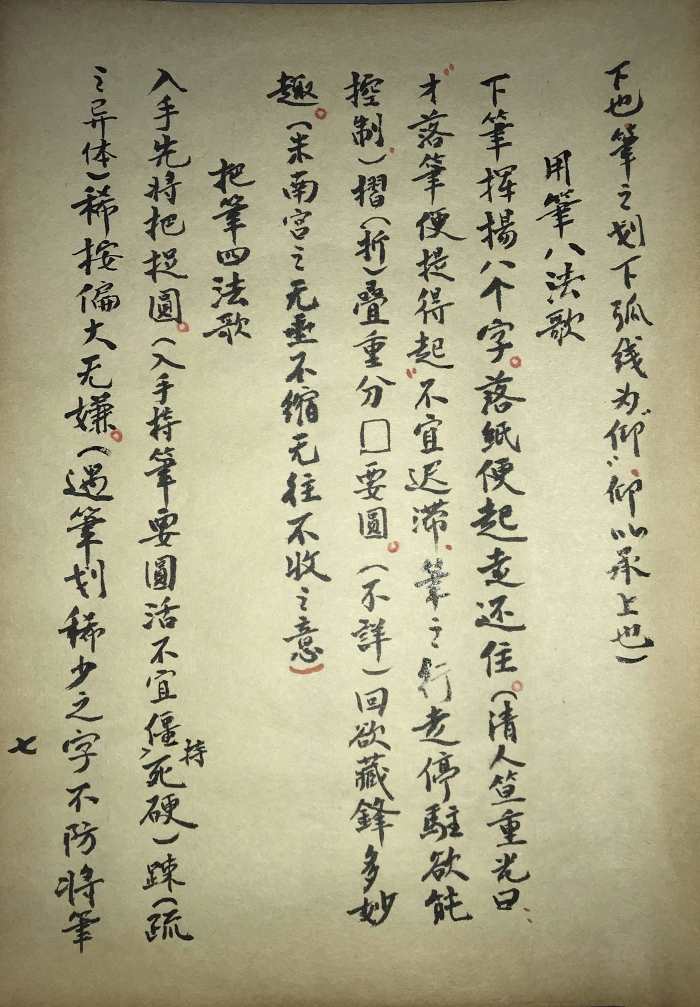 下也筆之划下弧线为“仰”，仰以承上也）
用筆八法歌
下筆揮揚八个字。落紙便起走还住。（清人笪重光曰：
“才落筆便提得起”不宜迟滞，筆之行走停駐欲能
控制）摺（折）疊重分□要圓。（不詳）回欲藏鋒多妙
趣。（米南宫之无垂不缩无往不收之意）
把筆四法歌
入手先将把捉圓。（入手持筆要圓活不宜僵持死硬）踈（疏
之异体）稀按偏大无嫌。（遇筆划稀少之字不防将筆
七